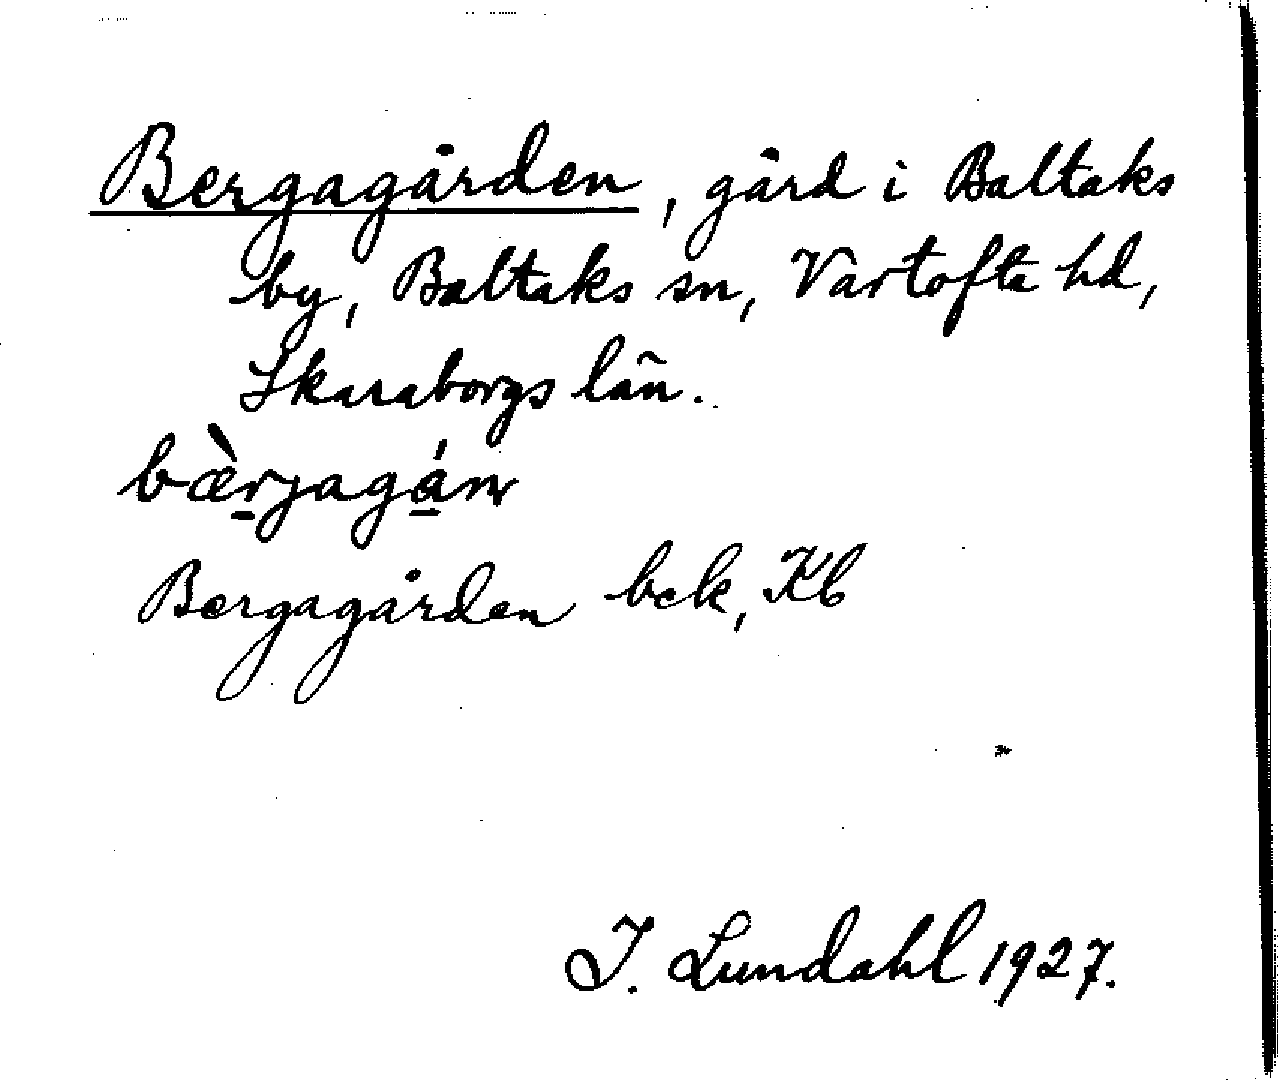 Bergagården, gård i Baltaks
by, Baltaks sn, Vartofta hd,
Skaraborgs län.
bæ̀r̠jagá̠nɹ
Bergagården bek, Kb
I. Lundahl 1927.